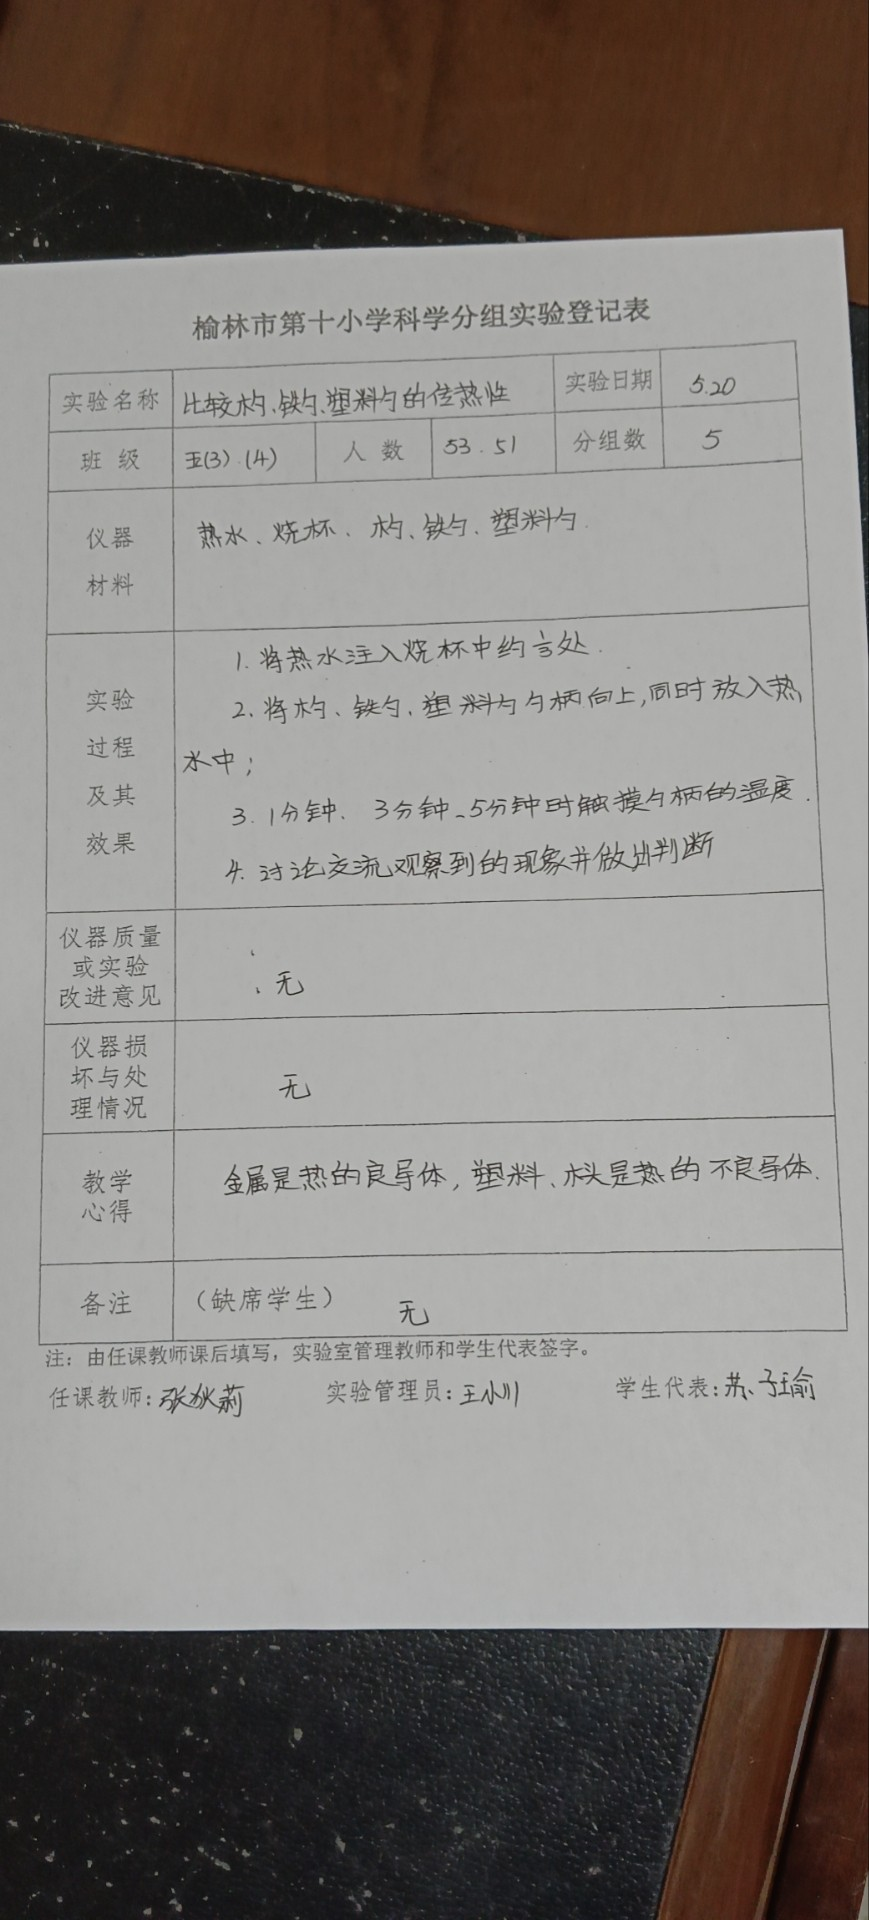 榆林市第十小学科学分组实验登记表
实验名称 比较杓、铁勺、塑料勺的传热性 实验日期 5.20
班级 五(3).(4) 人数 53.51 分组数 5
仪器材料 热水、烧杯、杓、铁勺、塑料勺.
实验过程及其效果
1.将热水注入烧杯中约 处.
2.将杓、铁勺、塑料勺勺柄向上,同时放入热
水中;
3.1分钟、3分钟、5分钟时触摸勺柄的温度.
4.讨论交流观察到的现象并做出判断
仪器质量或实验改进意见 无
仪器损坏与处理情况 无
教学心得 金属是热的良导体,塑料、木头是热的不良导体.
备注 (缺席学生) 无
注:由任课教师课后填写,实验室管理教师和学生代表签字。
任课教师: 实验管理员:王小川 学生代表:苏子瑜